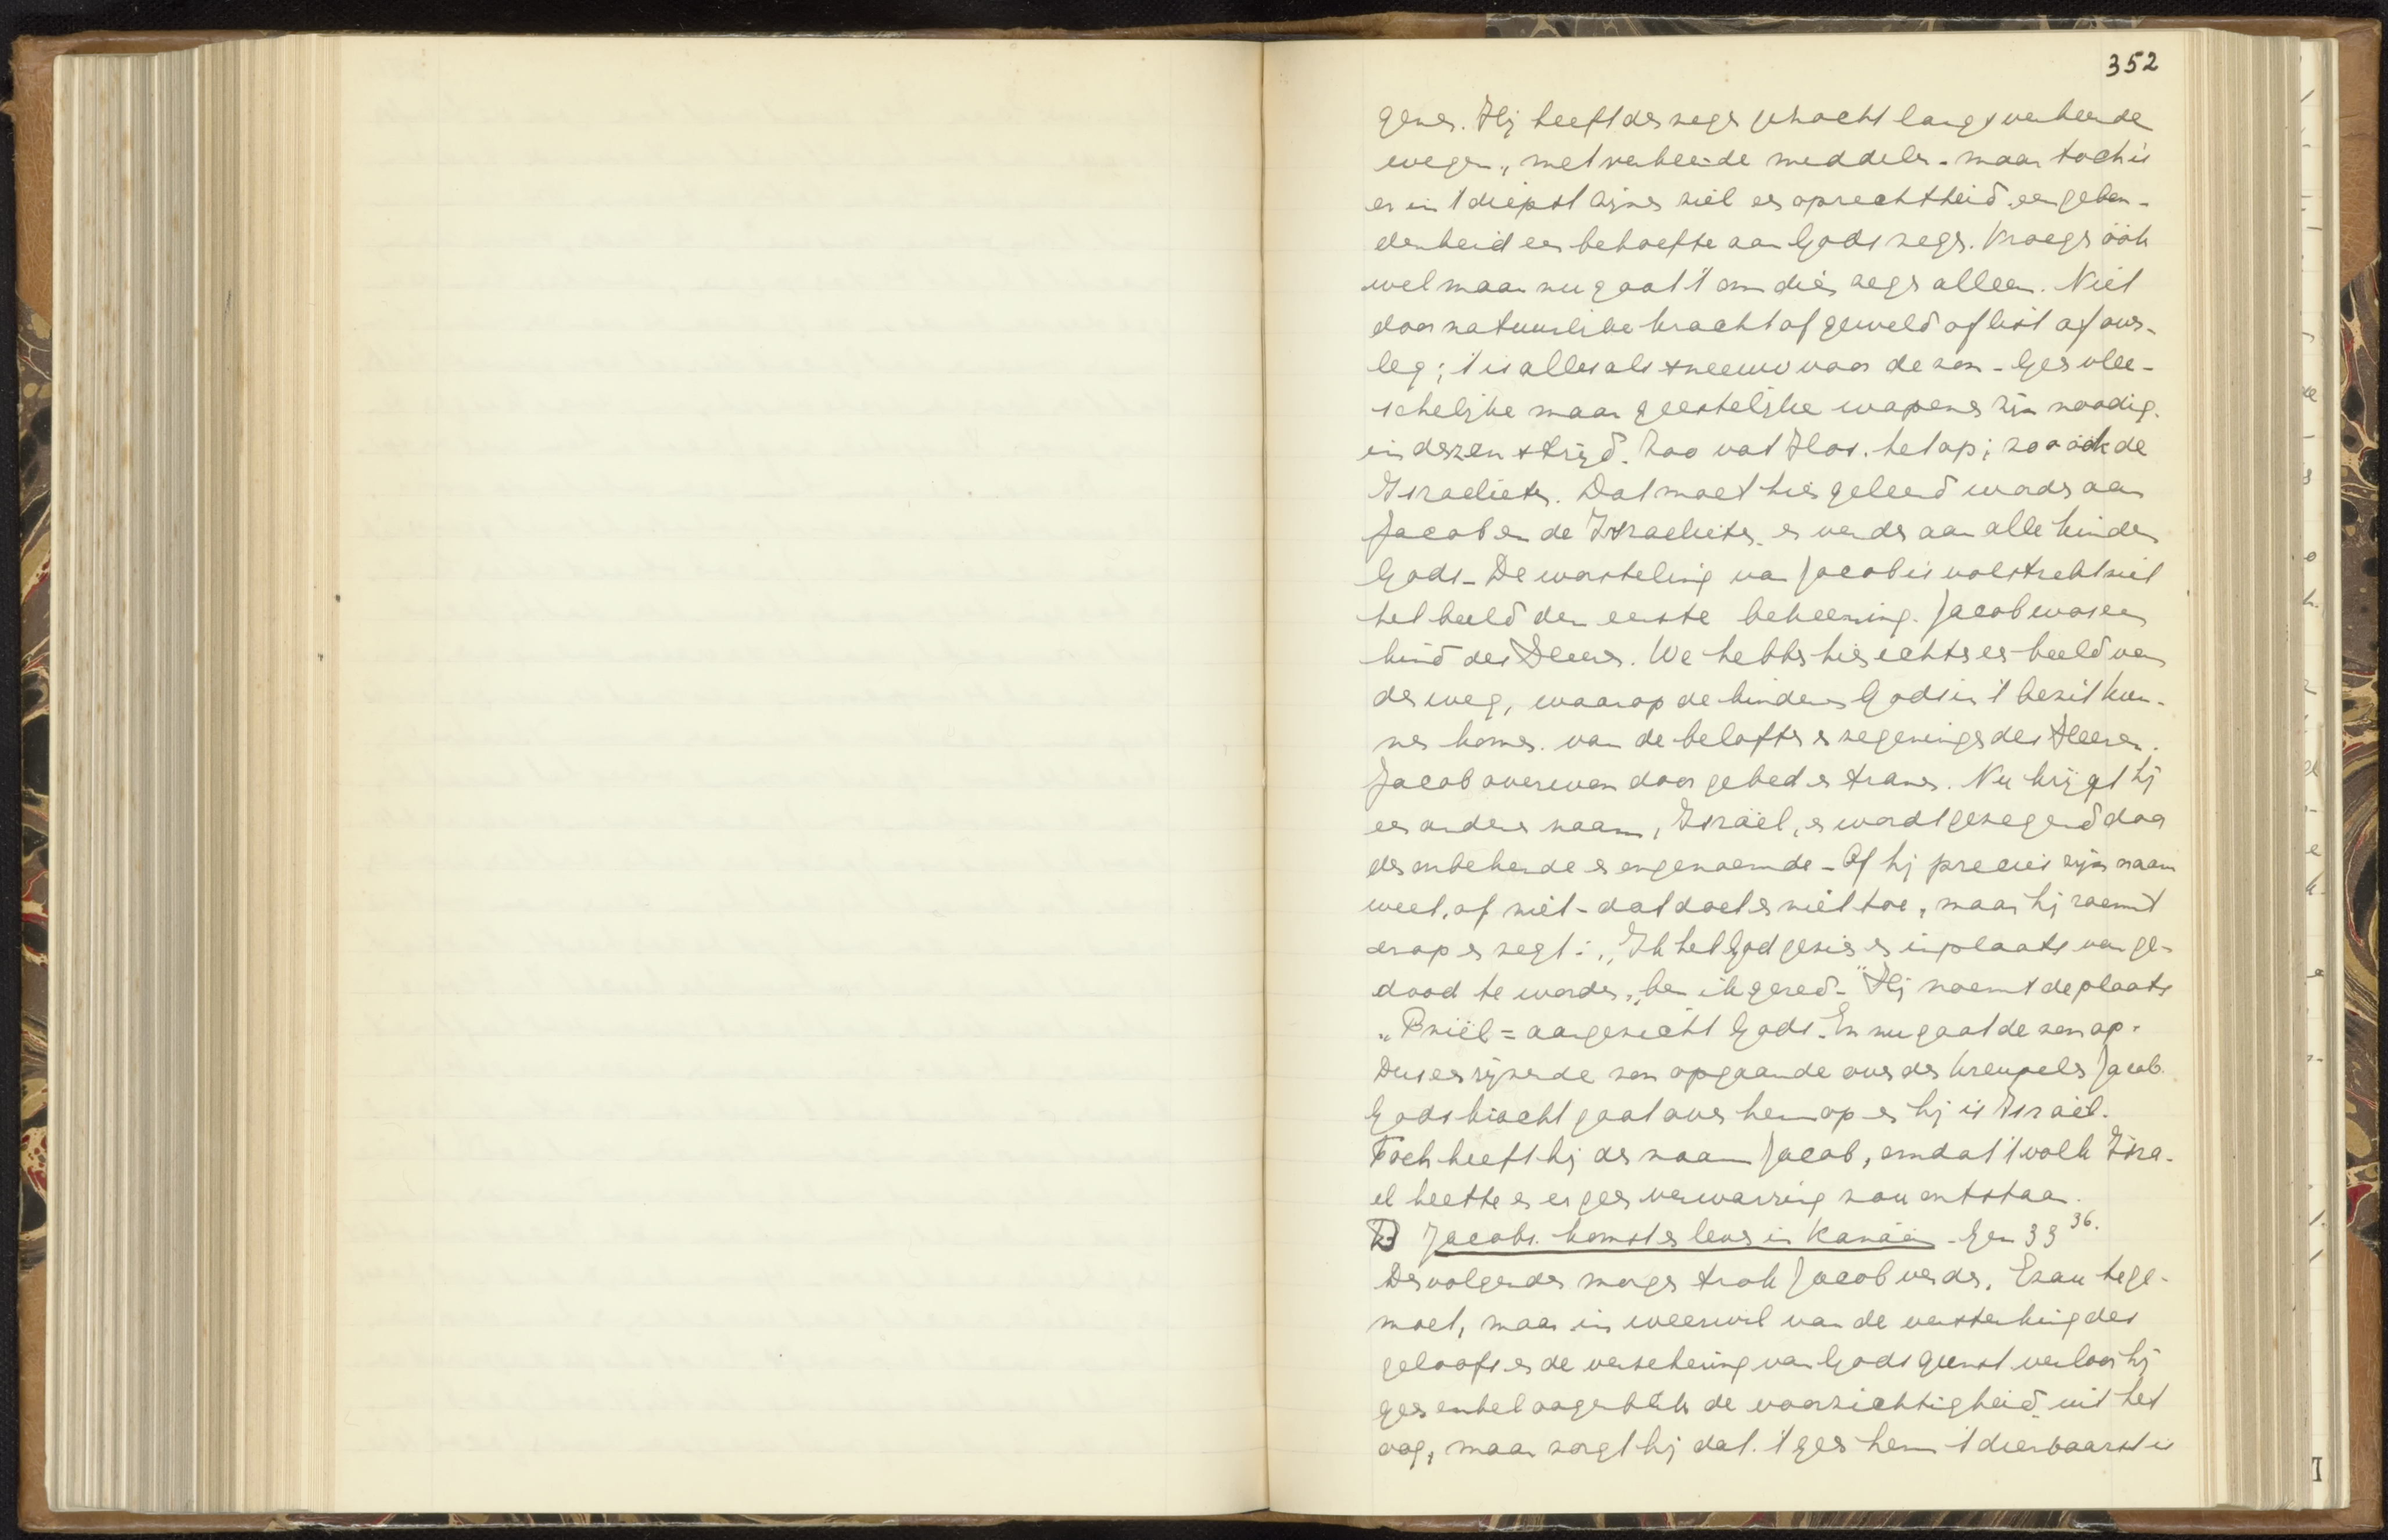 352
genen. Hij heeft den zegen gezocht langs verkeerde
wegen, met verkeerde middelen - maar toch is
er in 't diepst zijner ziel een oprechtheid een gebon-
denheid een behoefte aan Gods zegen. Vroeger óók
wel maar nu gaat 't om dien zegen alleen. Niet
door natuurlijke kracht of geweld of list of over-
leg; 't is alles als sneeuw voor de zon - Geen vlee-
schelijke maar geestelijke wapenen zijn noodig.
in dezen strijd. Zoo vat Hos. het op; zoo óók de
Israelieten. Dat moet hier geleerd worden aan
Jacob en de Israelieten en verder aan alle kinderen
Gods - De worsteling van Jacob is volstrekt niet
het beeld der eerste bekeering. Jacob was een
kind des Heeren. We hebben hier echter een beeld van
den weg, waarop de kinderen Gods in 't bezit kun-
nen komen van de beloften en zegeningen des Heeren.
Jacob overwon door gebed en tranen. Nu krijgt hij
een andere naam, Israël, en wordt gezegend door
den onbekende en ongenoemde - Of hij precies zijn naam
weet, of niet - dat doet er niet toe, maar hij roemt
erop en zegt: „Ik heb God gezien en in plaats van ge-
dood te worden, „ben ik gered -" Hij noemt de plaats
„Pniël = aangezicht Gods. En nu gaat de zon op.
Dus een rijzende zon opgaande over den kreupelen Jacob.
Gods kracht gaat over hem op en hij is Israël.
Toch heeft hij den naam Jacob, omdat 't volk Isra-
el heette en er geen verwarring zou ontstaan.
Jacobs. komst en leven in Kanaän - Gen 33 36.
Den volgenden morgen trok Jacob verder, Ezau tege-
moet, maar in weerwil van de versterking des
geloofs en de verzekering van Gods gunst verloor hij
geen enkel oogenblik de voorzichtigheid uit het
oog, maar zorgt hij dat 't geen hem 't dierbaarst is